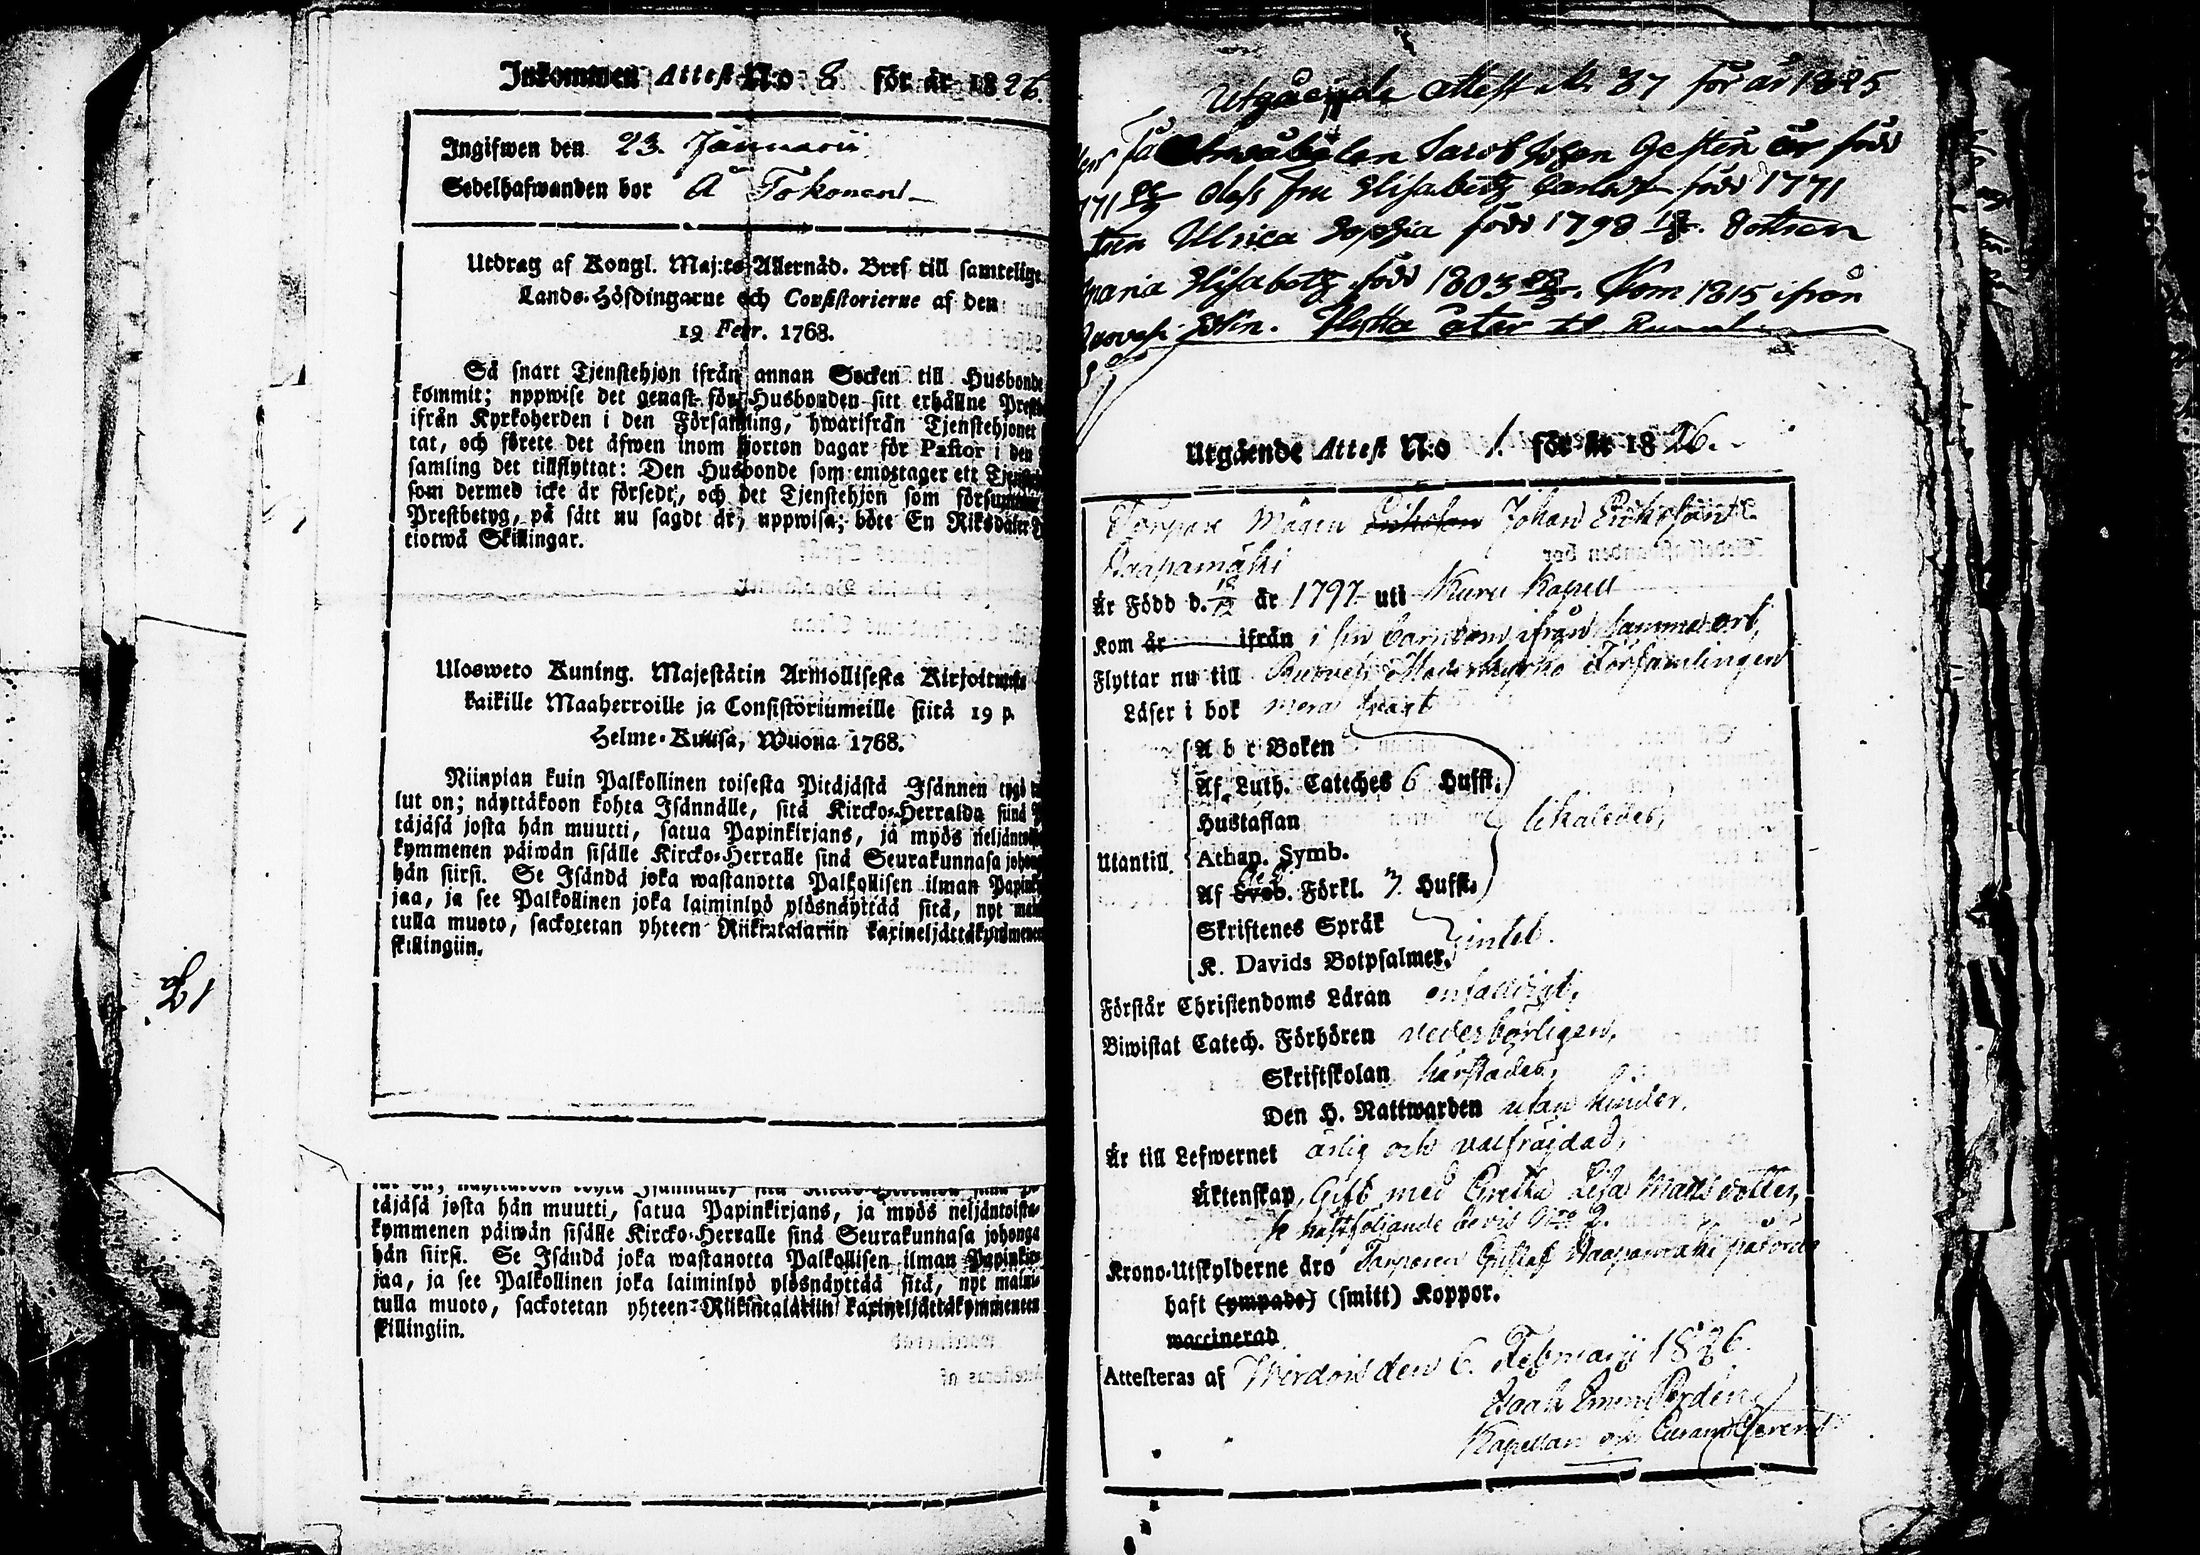 Inkommen Attest N:o 8 för år 1826.
Ingifwen den 23. Januarii
Sedelhafwanden bor å Tokonen
Utdrag af Kongl. Maj:ts Allernåd. Bref till samtelige
Lands-Höfdingarne och Consistorierne af den
19 Febr. 1768.
Så snart Tjenstehjon ifrån annan Socken till Husbonde
kommit; uppwise det genast för Husbonden sitt erhållne
ifrån Kyrkoherden i den Församling, hwarifrån Tjenstehjonet
tat, och förete det äfwen inom fjorton dagar för Pastor i den
samling det tillflyttat: Den Husbonde som emottager ett
som dermed icke är försedt, och det Tjenstehjon som
Prestbetyg, på sätt nu sagdt är, uppwisa; böte En Riksdaler
tiotwå Skillingar.
Ulosweto Kuning. Majestätin Armollisesta
kaikille Maaherroille ja Consistöriumeille siitä 19 p.
Helme-Kuusa, Wuona 1768.
Niinpian kuin Palkollinen toisesta Pitäjästä Isännen tygö
lut on; näyttäkoon kohta Isännälle, sitä Kircko-Herralda siinä
täjäsä josta hän muutti, saatua Papinkirjans, ja myös
kymmenen päiwän sisälle Kircko-Herralle sinä Seurakunnasa
hän siirsi. Se Isändä joka wastanotta Palkollisen ilman
jaa, ja see Palkollinen joka laiminlyö ylösnäyttää sitä, nyt
tulla muoto, sackotetan yhteen Riikintalariin
skillingiin.
täjäsä josta hän muutti, saatua Papinkirjans, ja myös neljäntoista-
kymmenen päiwän sisälle Kircko-Herralle sinä Seurakunnasa johonga
hän siirsi. Se Isändä joka wastanotta Palkollisen ilman Papinkir-
jaa, ja see Palkollinen joka laiminlyö ylösnäyttää sitä, nyt maini-
tulla muoto, sackotetan yhteen Riikintalariin kaxineljättäkymmeneen
skillingiin.
Utgående attest N. 37 för år 1825
Jacob Gestén är född
dess fru Elisabeth född 1771
Ulrica Sophia född 1798 Dottren
Maria Elisabeth född 1803. Kom 1815 ifrån
Ruovesi. Flytta åter til
Utgående Attest N:o 1. för år 1826.
Torpare Mågen Eriksson Johan Eriksson
Haapamäki
Är Född d. 18/12 år 1797 uti Kuru Kapell
Kom år ifrån i sin barndom ifrån samma ort,
Flyttar nu till Ruovesi Moderkyrko Församlingen
Läser i bok
A b c Boken
Af Luth. Cateches 6 Hufst.
Hustaflan likaledes,
Utantill Athan. Symb.
Af Sveb. Förkl. 7. Hufst.
Skriftenes Språk
K. Davids Botpsalmer. intet.
Förstår Christendoms Läran enfaldigt,
Biwistat Catech. Förhören vederbörligen,
Skriftskolan härstädes,
Den H. Nattwarden utan hinder.
Är till Lefwernet ärlig och välfräjdad,
Äktenskap, Gift med Gretha Lisa Mattsdotter,
se nästföljande bevis N:o 2.
Krono-Utskylderne äro Torparen Gustaf Haapamäki påförda
haft (ympade) (smitt) Koppor.
waccinerad
Attesteras af Wirdois den 6. Februarii 1826.
Kapellan